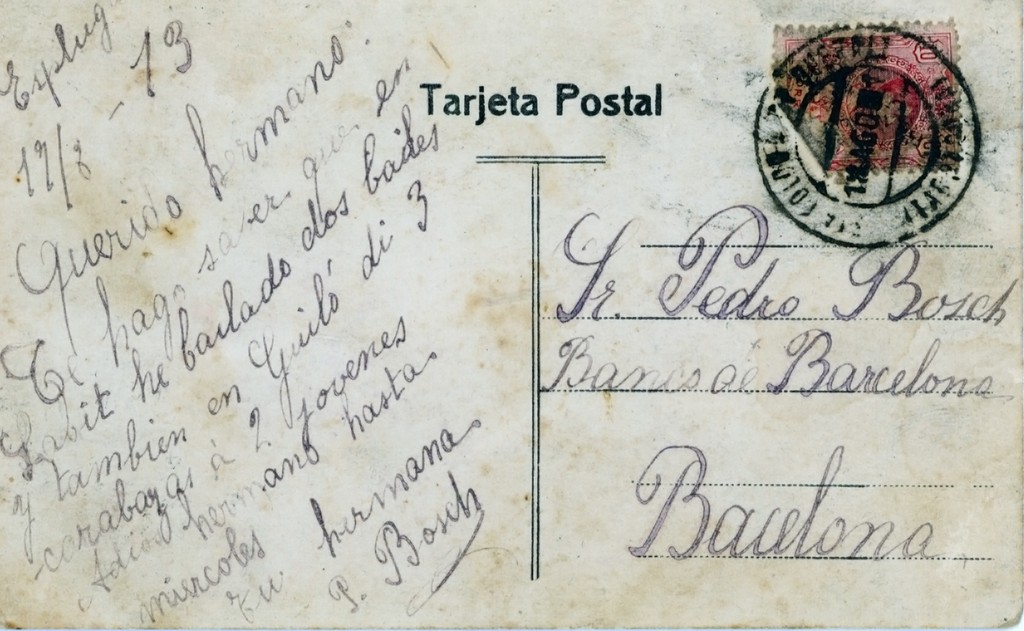 Esplug
17/8 - 13
Querido hermano:
Te hago saver que en
Labit he bailado dos bailes
y tambien en Guiló di 3
carabazas á 2 jovenes
Adios hermano hasta
miercoles
tu hermana
P. Bosch
Tarjeta Postal
Sr. Pedro Bosch
Banco de Barcelona
Bacelona